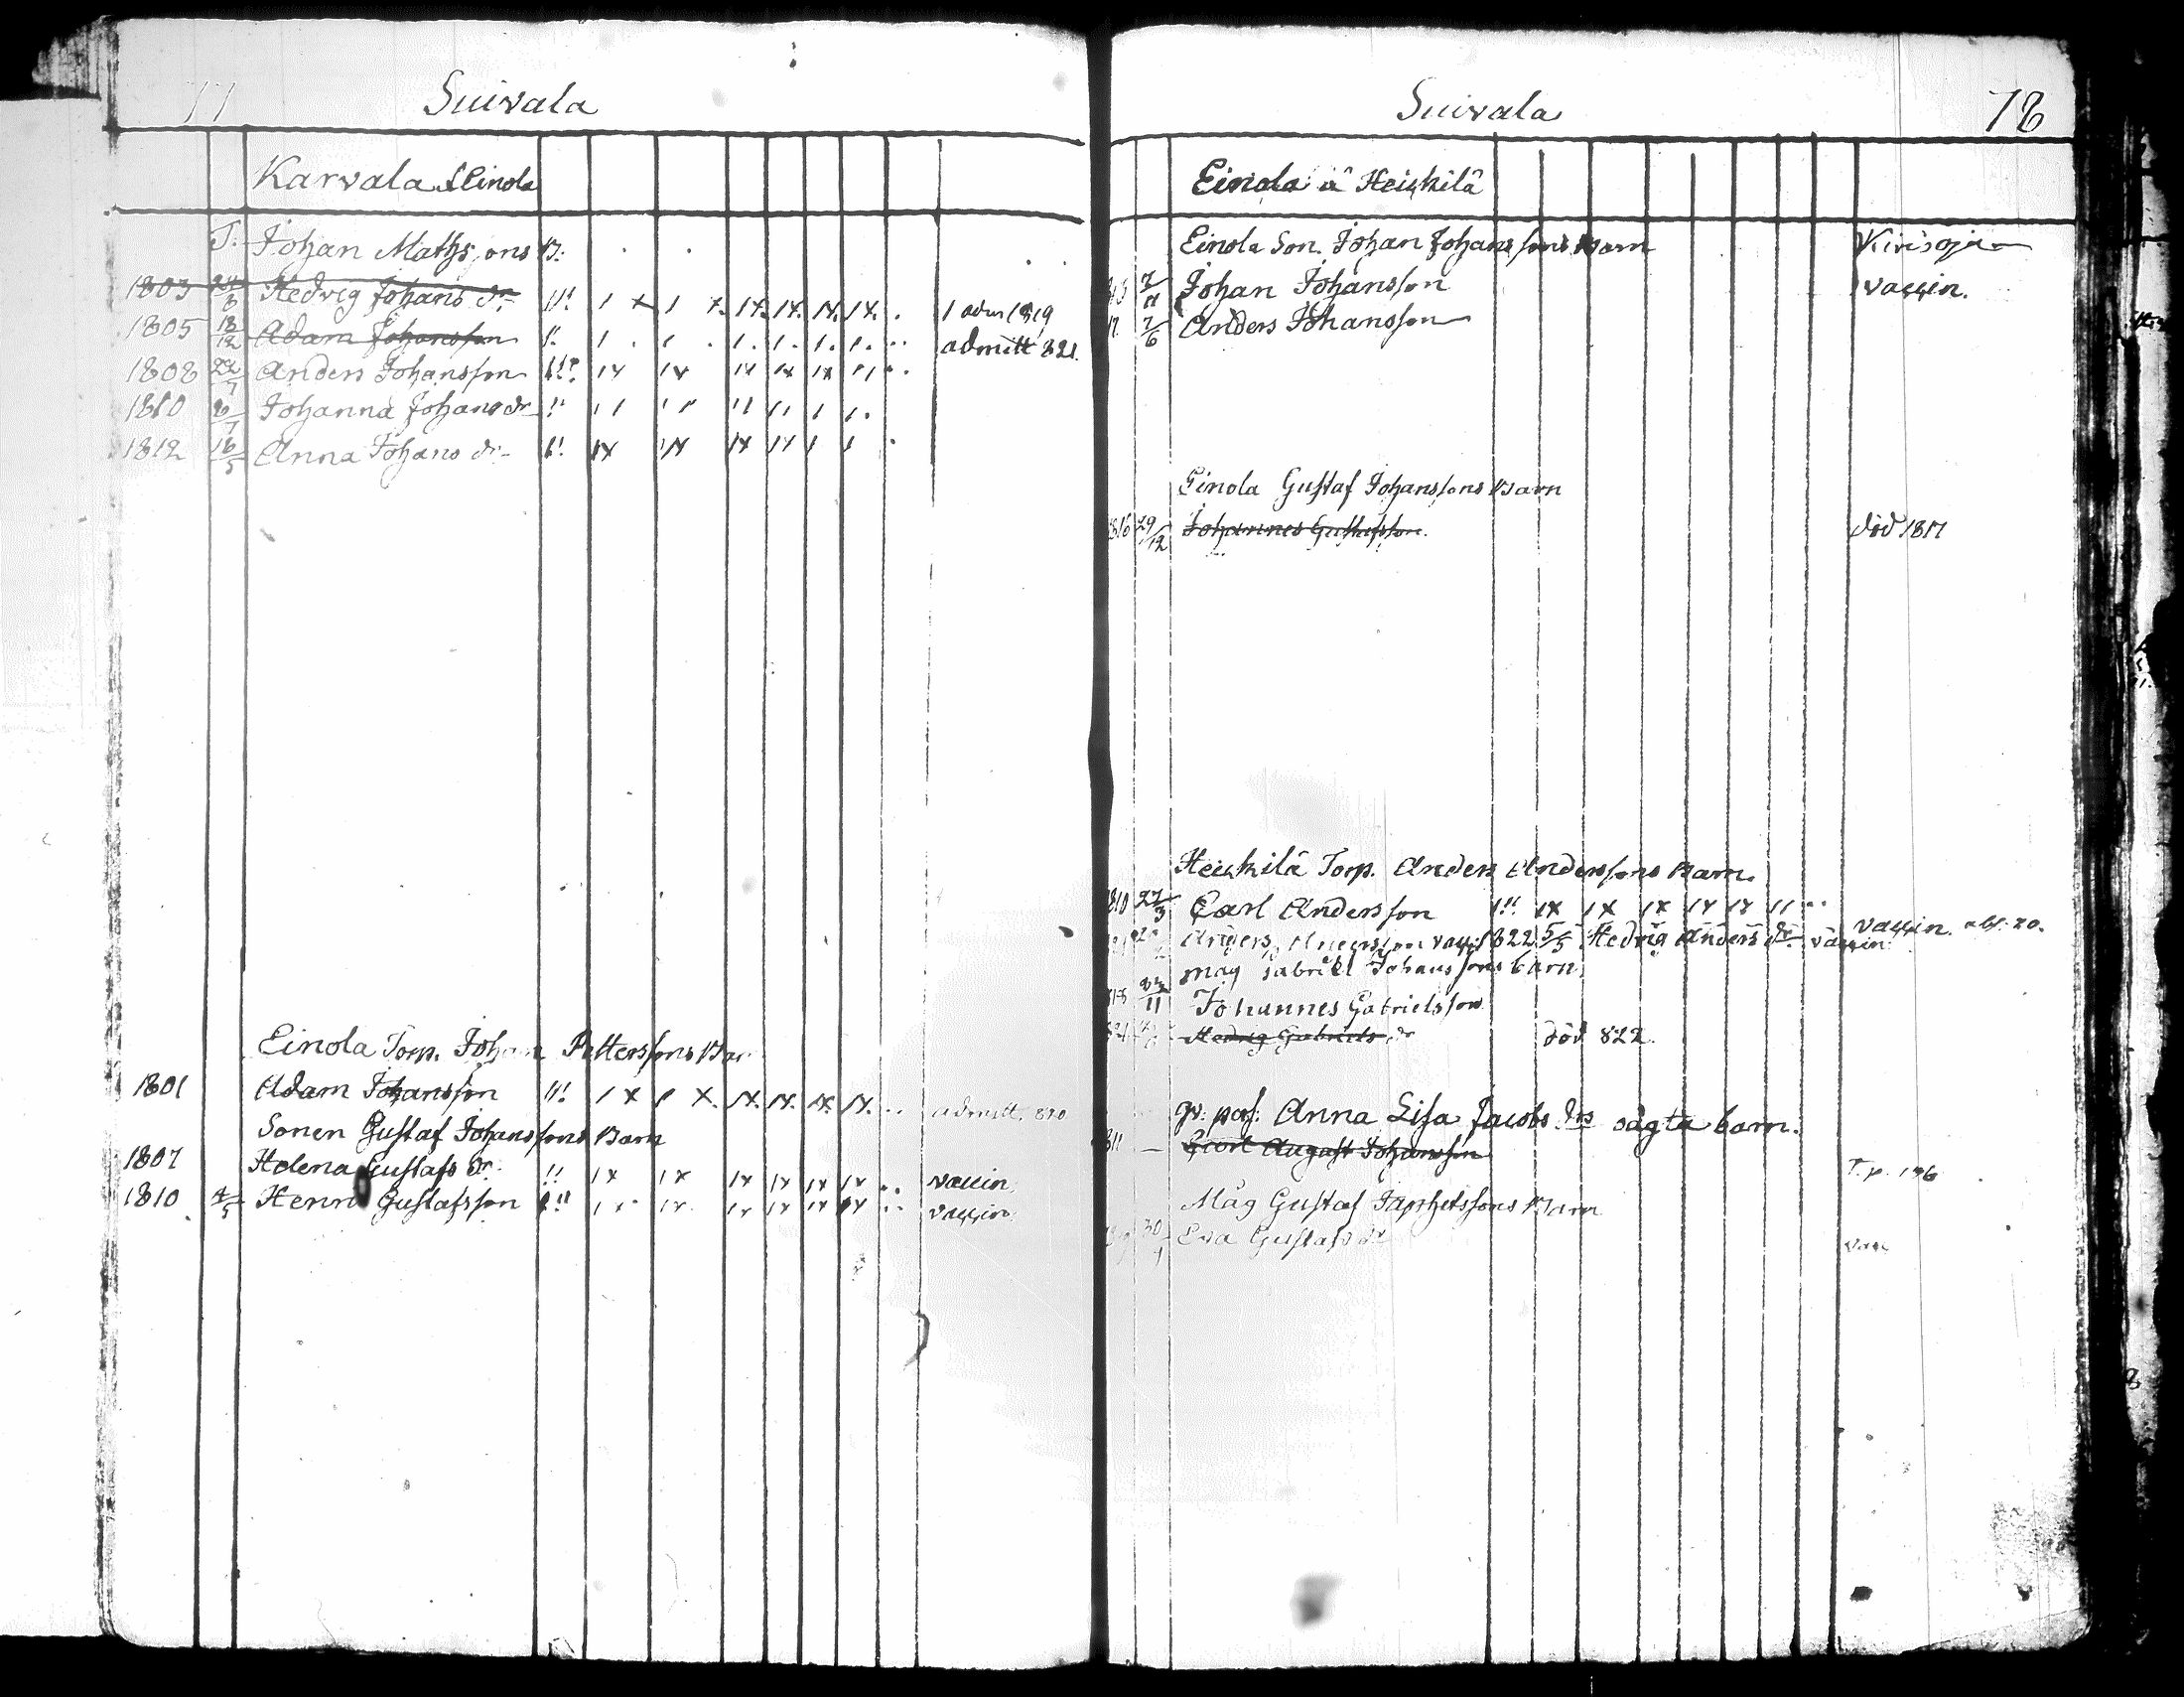 77 Suivala
Karvala & Einola
T. Johan Mathssons B:
1803 24/6 Hedvig Johans dr 1 adm 1819
1805 18/12 Adam Johansson admitt 821.
1808 22/7 Anders Johansson
1810 6/7 Johanna Johans dr
1812 16/5 Anna Johans dr
Einola Torp. Johan Petterssons Bar
1801 Adam Johansson admitt. 820
Sonen Gustaf Johanssons Barn
1807 Helena Gustafs dr vaccin.
1810 4/5 Henric Gustafsson vaccin.
Suivala 78
Einola à Heickilä
Einola Son. Johan Johanssons Barn
Johan Johansson vaccin.
17. 7/6 Anders Johansson
Einola Gustaf Johanssons Barn
1816 29/12 Johannes Gustafsson. död 1817
Heickilä Torp. Anders Anderssons Barn.
1810 27/3 Carl Andersson vaccin. abs. 20.
Anders Andersson vacc. 1822 5/5 Hedvig Anders dr. vaccin.
mag Gabriel Johanssons barn
Johannes Gabrielsson
821 Hedvig Gabriels dr död 822.
Anna Lisa Jacobs drs oägta barn.
811 — Carl August Johansson
T. p. 196
Måg Gustaf Japhetssons Barn
30/4 Eva Gustafs dr vac